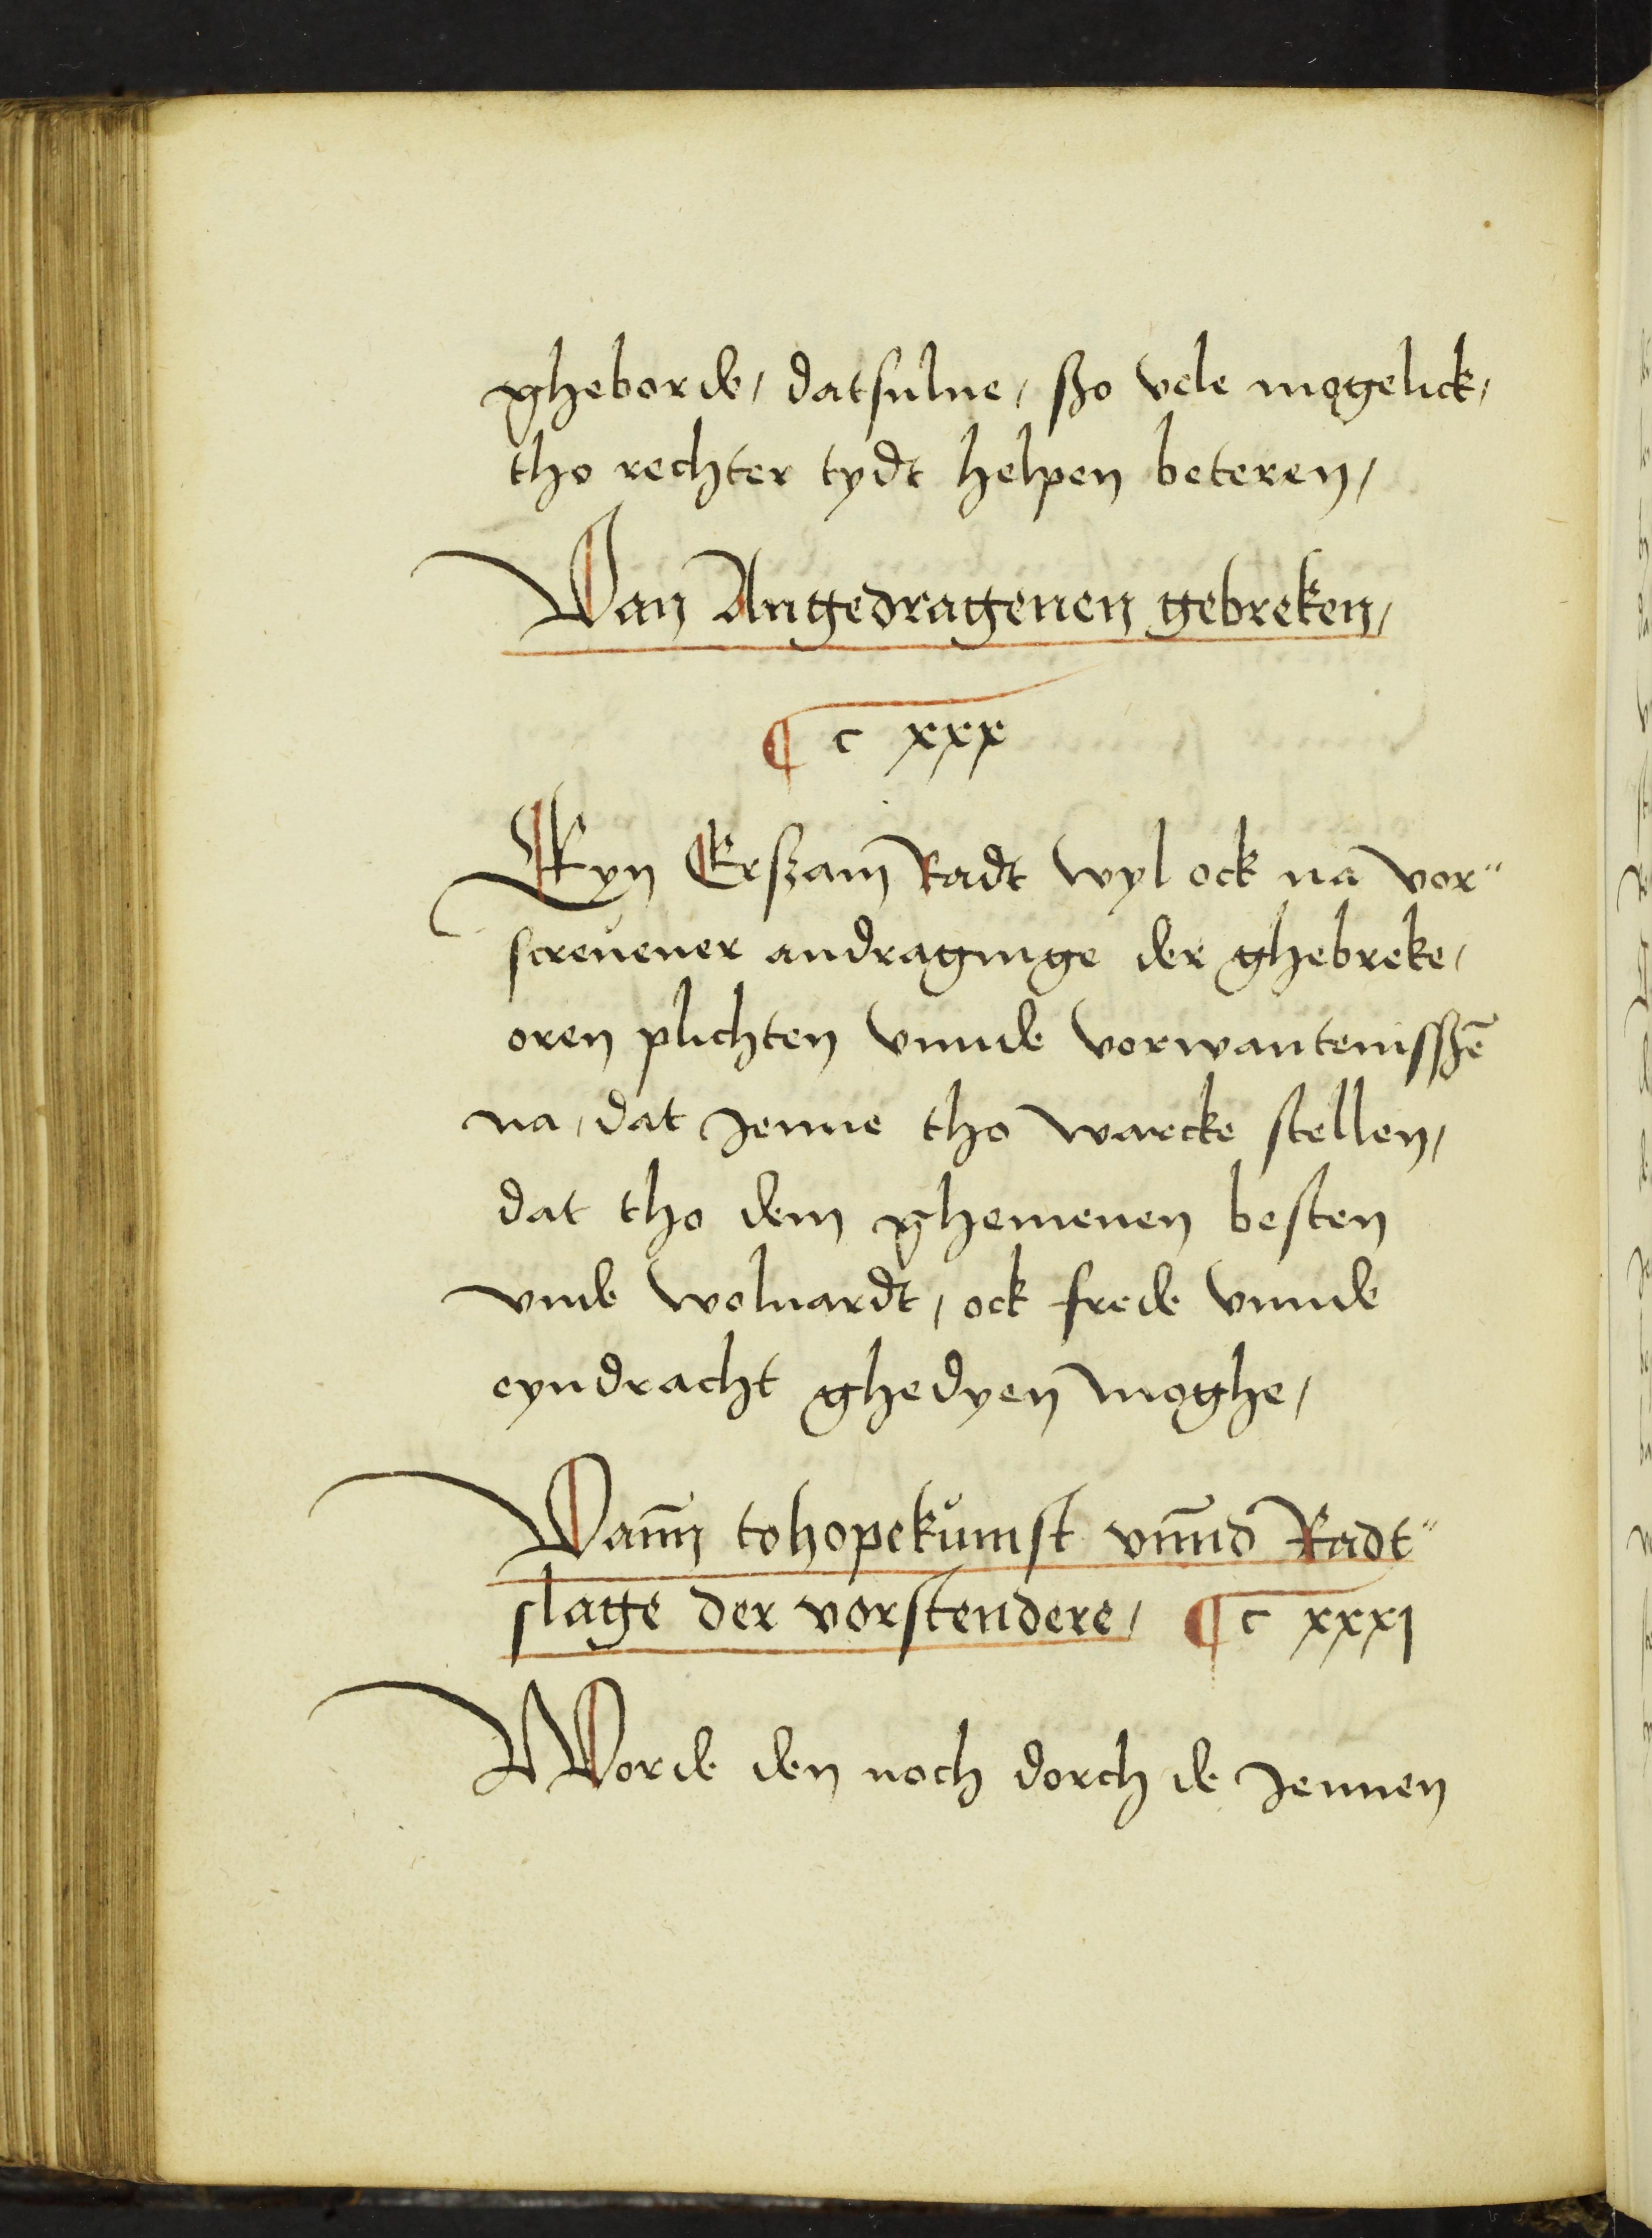 gheborde, datsulue, szo vele mogelick,
tho rechter tydt helpen beteren,
Van Angedragenen gebreken,
¶ c xxx
Eyn Erszam Radt wyl ock na vor"
screuener andraginge der ghebreke,
oren plichten vnnde vorwanteniszē
na, dat Jenne tho warcke stellen,
dat tho dem ghemenen besten
vnde woluardt, ock frede vnnde
eyndracht ghedyen moghe,
Van̄n tohopekůmst vn̄nd Radt"
slage der vorstendere, ¶ c xxxj
Worde den noch dorch de Jennen